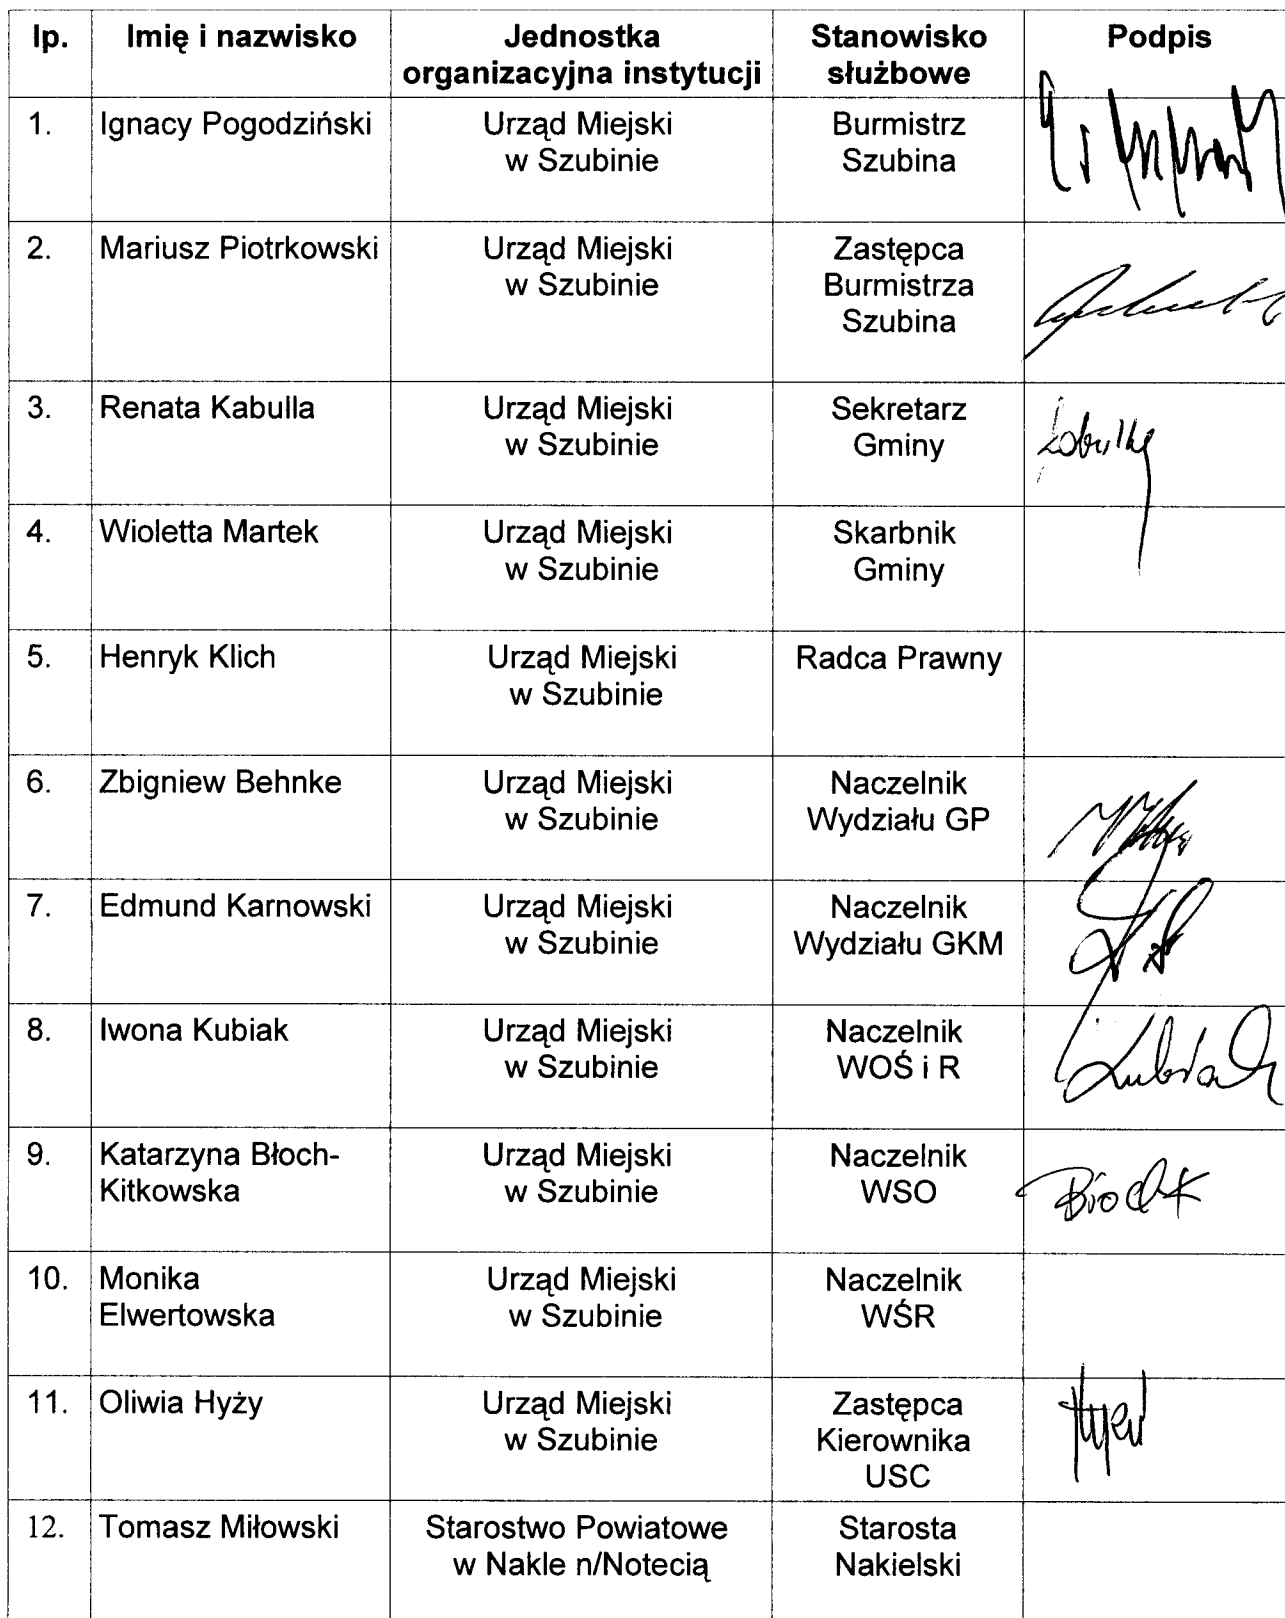 lp. Imię i nazwisko Jednostka organizacyjna instytucji Stanowisko służbowe Podpis
1. Ignacy Pogodziński Urząd Miejski w Szubinie Burmistrz Szubina
2. Mariusz Piotrkowski Urząd Miejski w Szubinie Zastępca Burmistrza Szubina
3. Renata Kabulla Urząd Miejski w Szubinie Sekretarz Gminy
4. Wioletta Martek Urząd Miejski w Szubinie Skarbnik Gminy
5. Henryk Klich Urząd Miejski w Szubinie Radca Prawny
6. Zbigniew Behnke Urząd Miejski w Szubinie Naczelnik Wydziału GP
7. Edmund Karnowski Urząd Miejski w Szubinie Naczelnik Wydziału GKM
8. Iwona Kubiak Urząd Miejski w Szubinie Naczelnik WOŚ i R Kubiak
9. Katarzyna Błoch-Kitkowska Urząd Miejski w Szubinie Naczelnik WSO
10. Monika Elwertowska Urząd Miejski w Szubinie Naczelnik WŚR
11. Oliwia Hyży Urząd Miejski w Szubinie Zastępca Kierownika USC
12. Tomasz Miłowski Starostwo Powiatowe w Nakle n/Notecią Starosta Nakielski